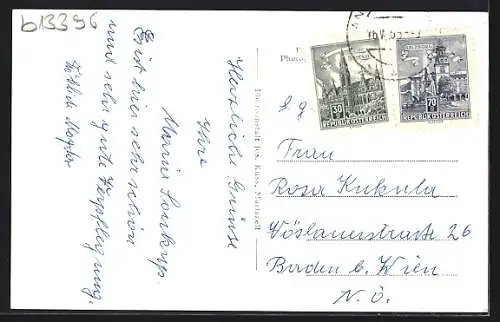 b13396
Herzliche Grüsse
Ihre
Marie
Es ist hier sehr schön
und sehr gute Verpflegung.
Photoanstalt Jos. Kuss, Mariazell
30
REPUBLIK ÖSTERREICH
SALZBURG
70
REPUBLIK ÖSTERREICH
Frau
Rosa Kukula
Wöslauerstraste 26
Baden b. Wien
N.Ö.